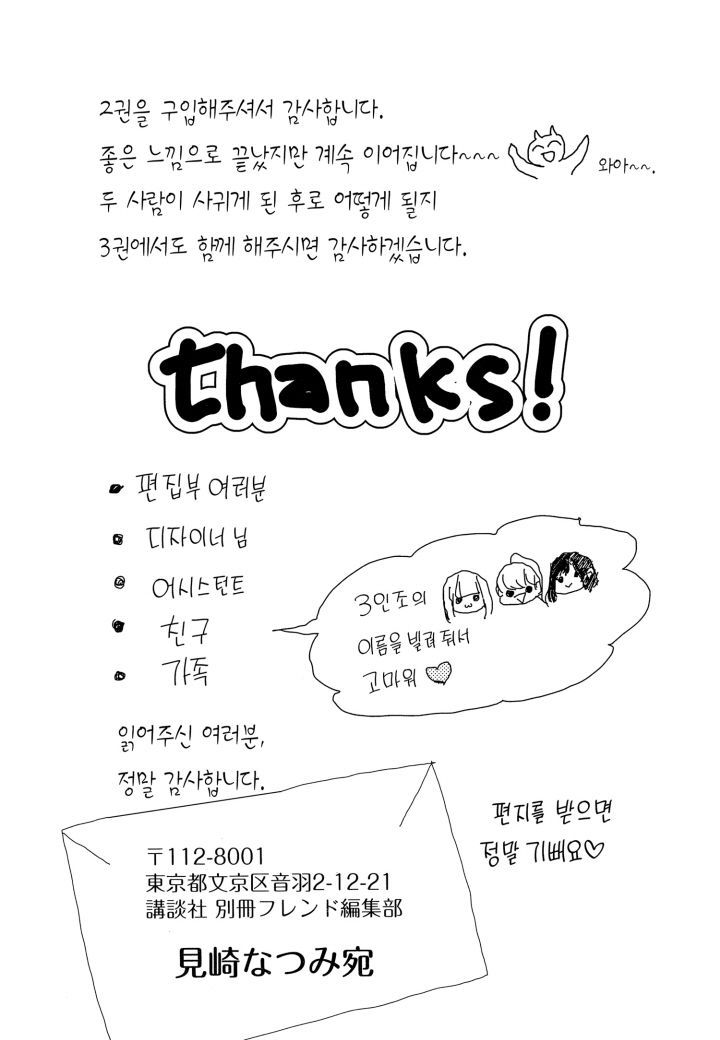 2권을 구입해주셔서 감사합니다.
좋은 느낌으로 끝났지만 계속 이어집니다~~~
와아~~.
두 사람이 사귀게 된 후로 어떻게 될지
3권에서도 함께 해주시면 감사하겠습니다.
thanks!
편집부 여러분
디자이너 님
어시스턴트
친구
가족
3인조의
이름을 빌려 줘서
고마워
읽어주신 여러분,
정말 감사합니다.
편지를 받으면
정말 기뻐요♡
〒112-8001
東京都文京区音羽2-12-21
講談社 別冊フレンド編集部
見崎なつみ宛